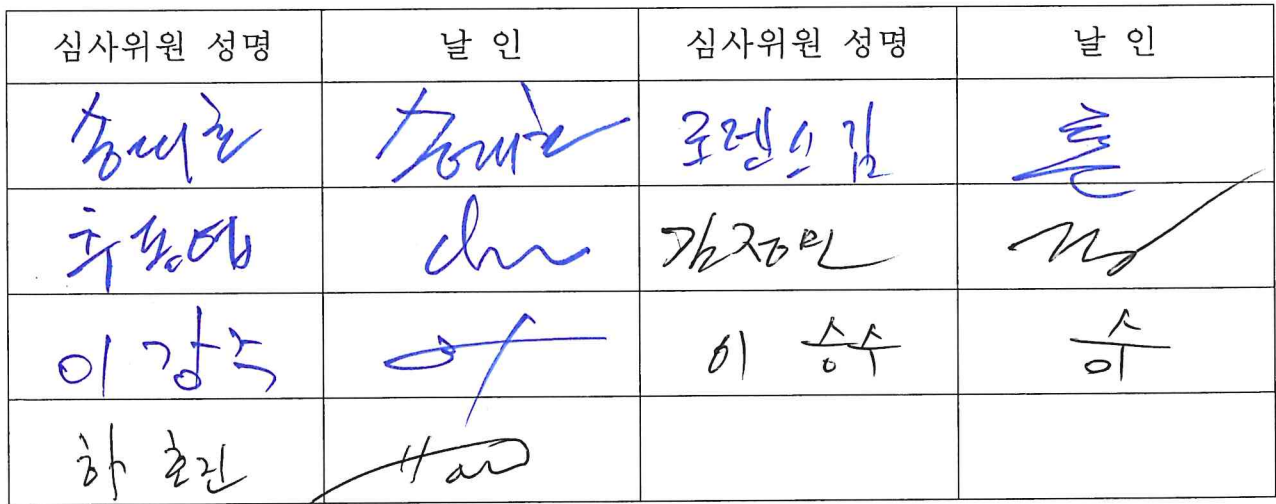 심사위원 성명 날 인 심사위원 성명 날 인
송대호 송대호 로렌스김
추풍엽 김정민
이강주 이승수
하호진 Ha